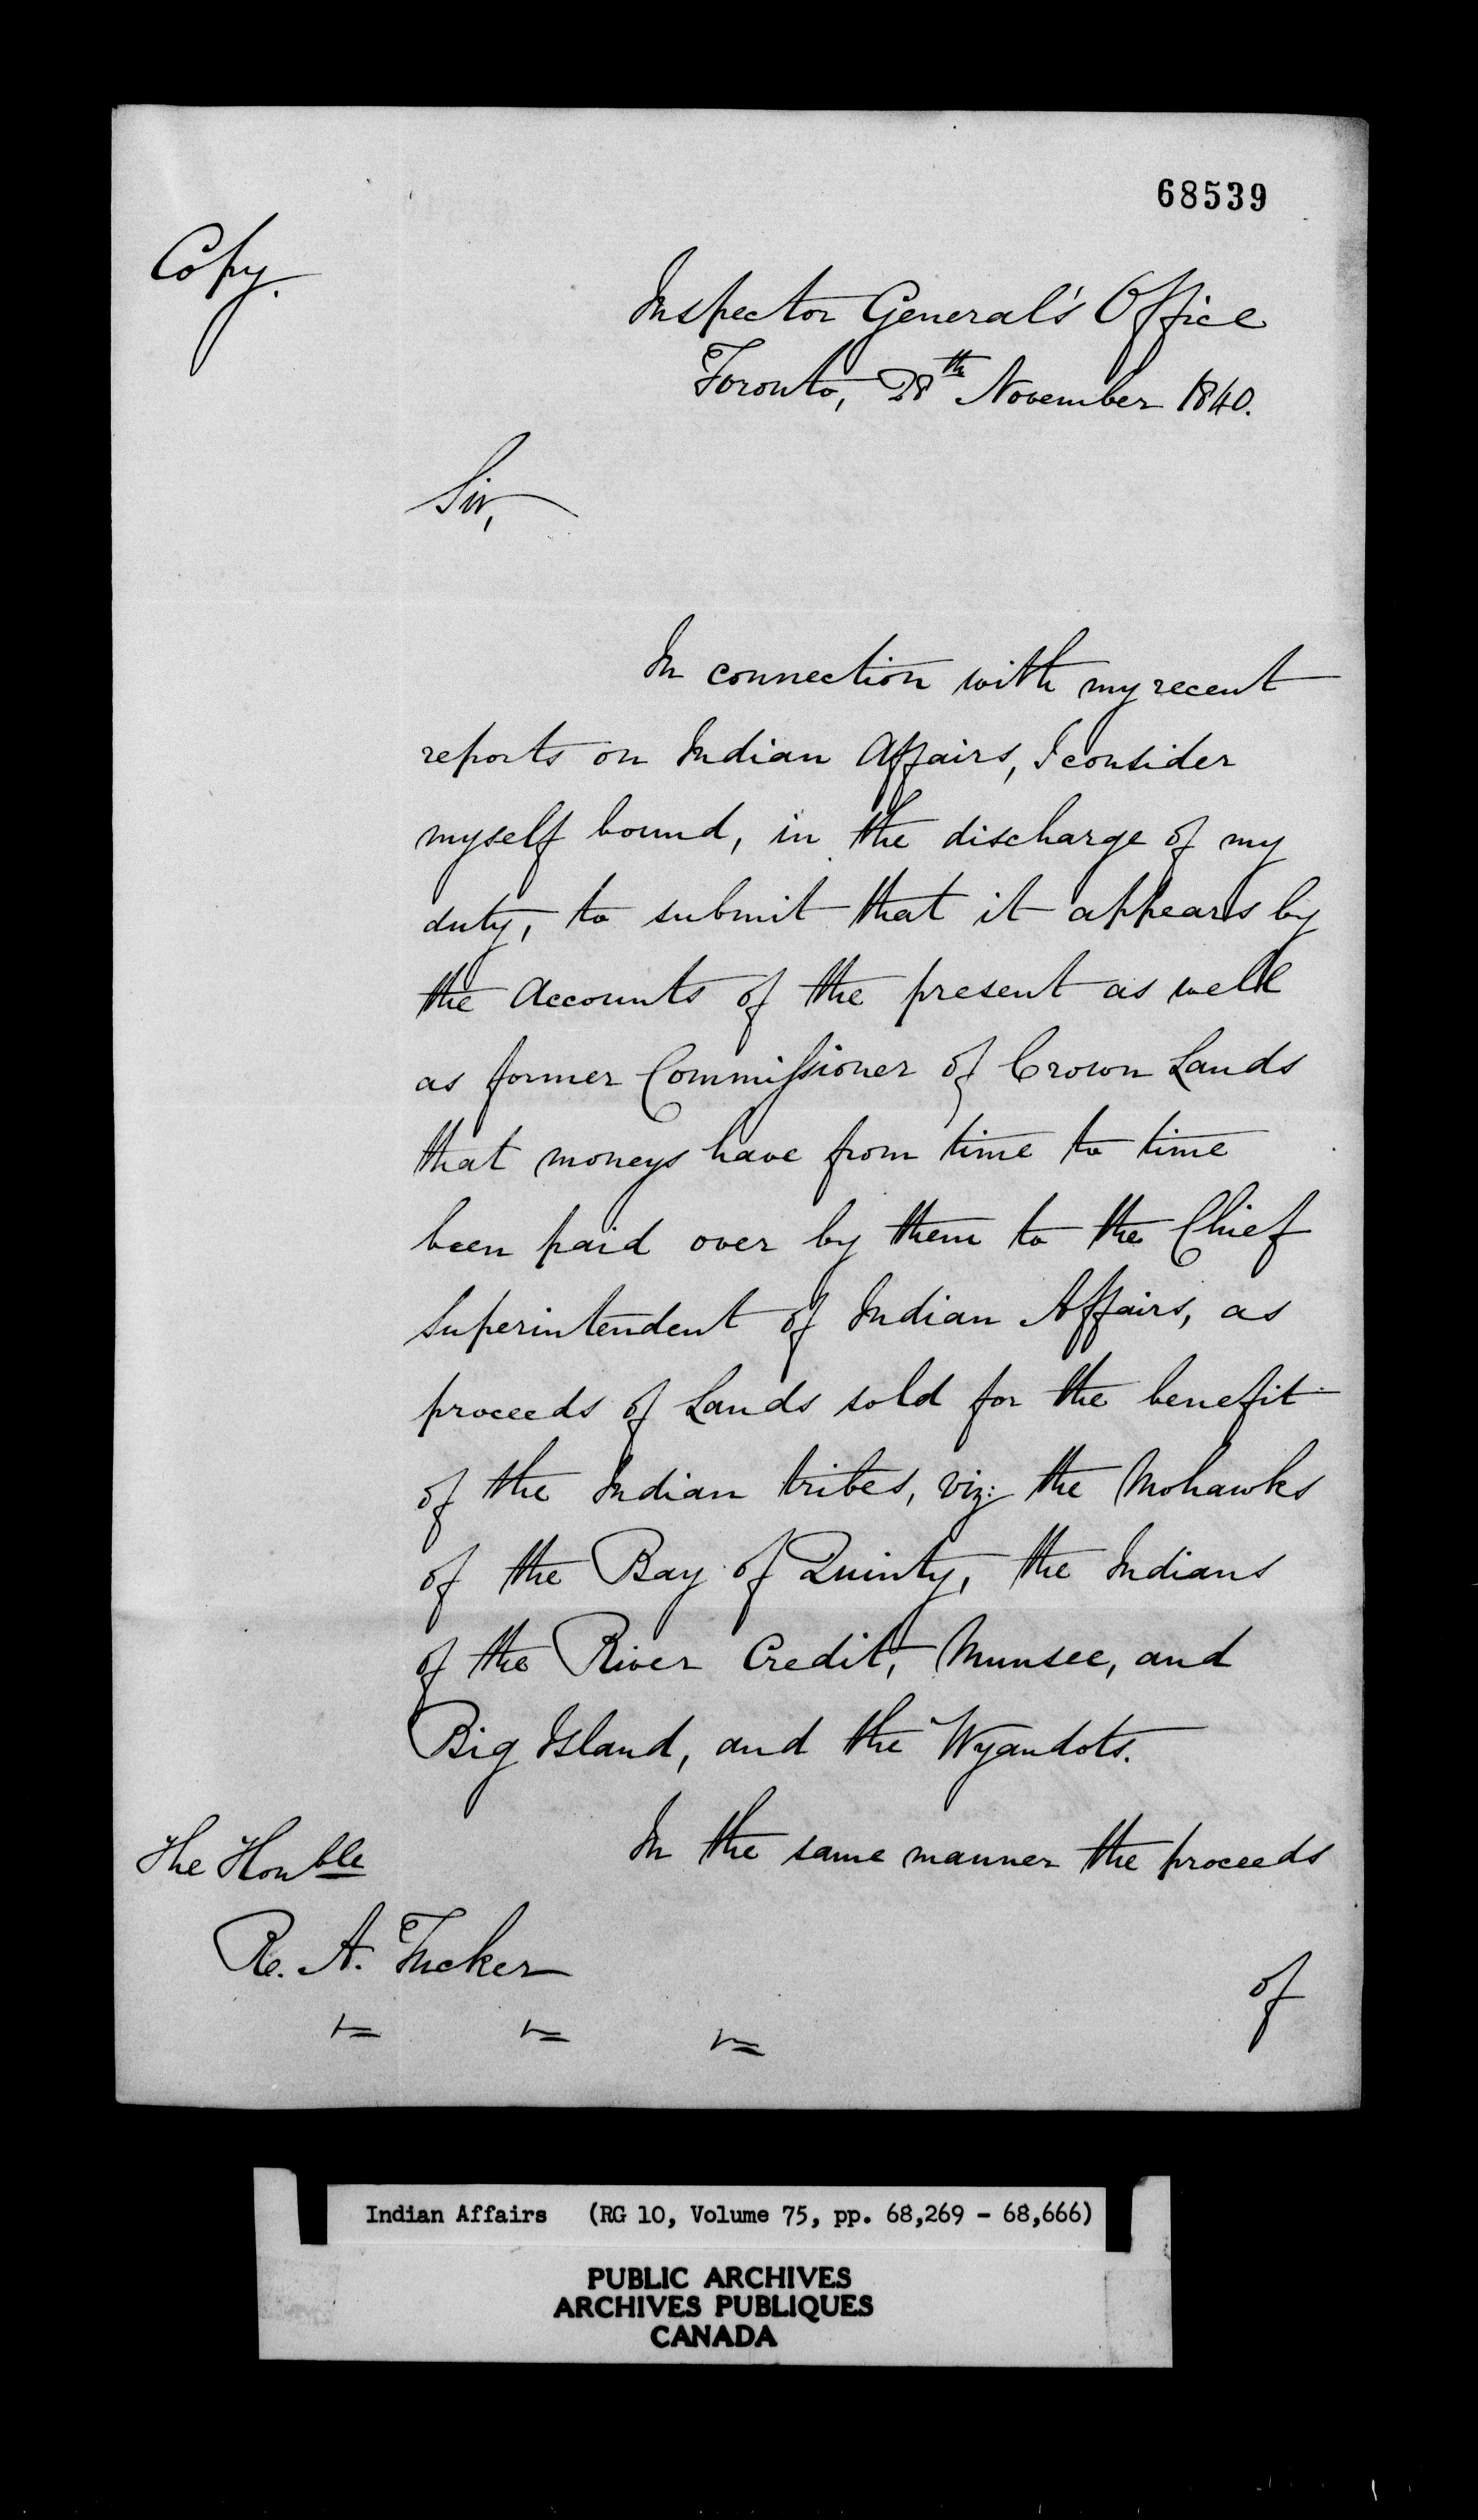 68539
Copy.
Inspector General's Office
Toronto, 28th November 1840.
Sir,
In connection with my recent
reports on Indian Affairs, I consider
myself bound, in the discharge of my
duty, to submit that it appears by
the Accounts of the present as well
as former Commissioner of Crown Lands
that moneys have from time to time
been paid over by them to the Chief
Superintendent of Indian Affairs, as
proceeds of Lands sold for the benefit
of the Indian tribes, viz: the Mohawks
of the Bay of Quinty, the Indians
of the River Credit, Munsee, and
Big Island, and the Wyandots.
In the same manner the proceeds
The Honble
R. A. Tucker
of
Indian Affairs (RG 10, Volume 75, pp. 68,269 - 68,666)
PUBLIC ARCHIVES
ARCHIVES PUBLIQUES
CANADA